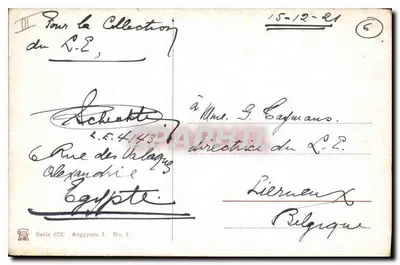 III
Pour la Collection
du L.E,
15-12-21
6
L.E.4143
6 Rue des
Alexandrie
Egypte
à Mme. G. Caymans.
directrice du L.E.
Lierneux
Belgique
Serie 672. Aegypten I. No. 1.